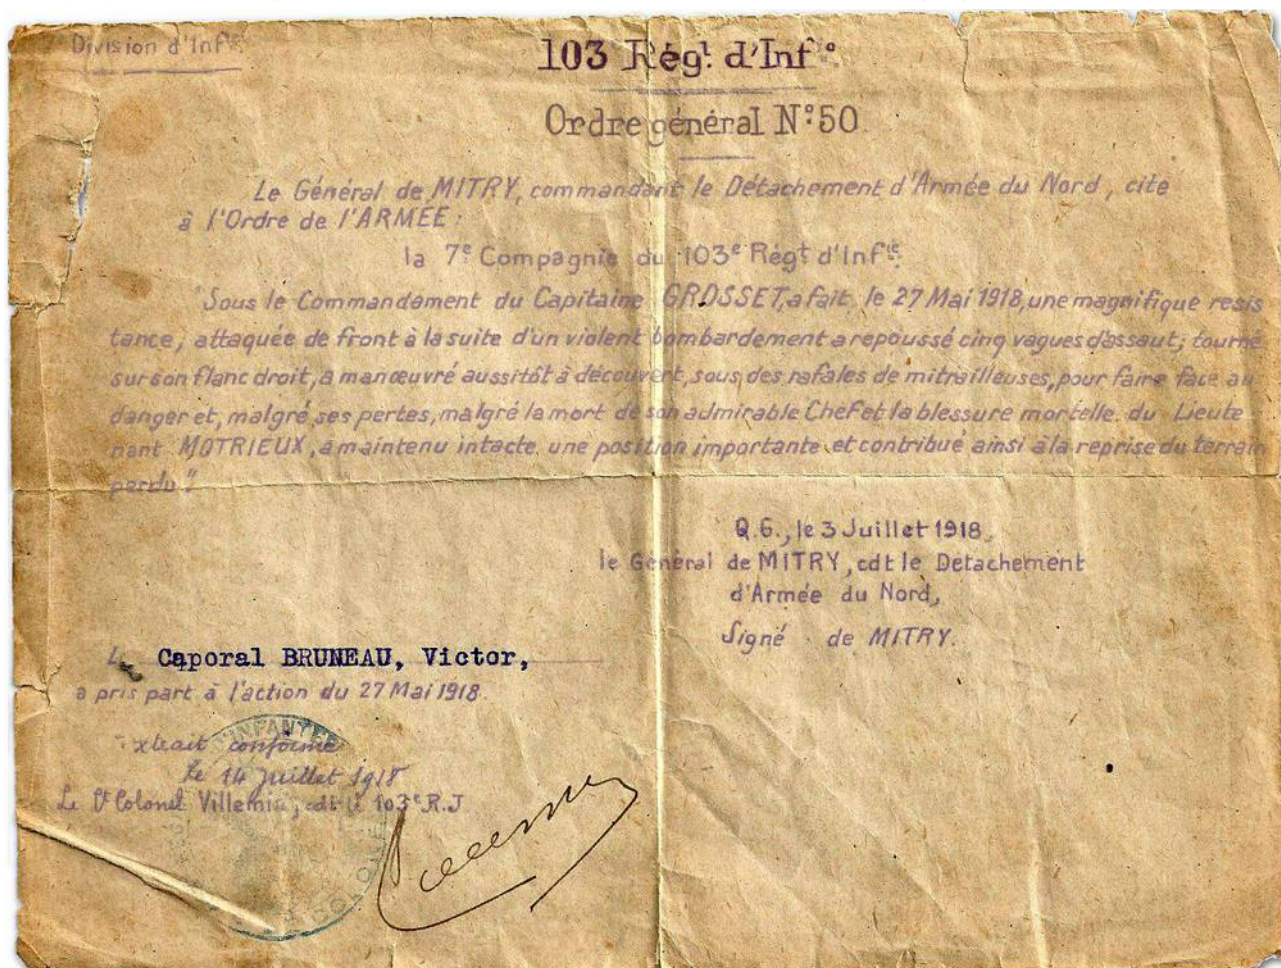 Division d'Infie
103e Régt d'Infie
Ordre général N°50
Le Général de MITRY, commandant le Détachement d'Armée du Nord, cite
à l'Ordre de l'ARMÉE:
la 7e Compagnie du 103e Régt d'Infie
"Sous le Commandement du Capitaine GROSSET, a fait, le 27 Mai 1918, une magnifique resis
tance, attaquée de front à la suite d'un violent bombardement a repoussé cinq vagues d'assaut; tourné
sur son flanc droit, a manœuvré aussitôt à découvert, sous des rafales de mitrailleuses, pour faire face au
danger et, malgré ses pertes, malgré la mort de son admirable Chef et la blessure mortelle du Lieute
nant MOTRIEUX, a maintenu intacte une position importante et contribué ainsi à la reprise du terrain
perdu."
Q.G., le 3 Juillet 1918,
le Général de MITRY, cdt le Detachement
d'Armée du Nord,
Signé de MITRY.
Le Caporal BRUNEAU, Victor,
a pris part à l'action du 27 Mai 1918.
Extrait conforme
le 14 Juillet 1918
Le Lt Colonel Villemin, cdt le 103e R.I
D'INFANTERIE
COLONEL